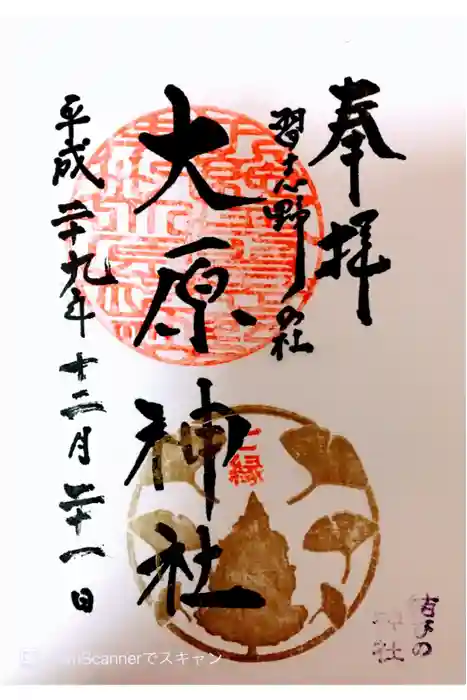 奉拝
習志野の社
大原神社
平成二十九年十二月二十一日
ご縁
神社
Scannerでスキャン